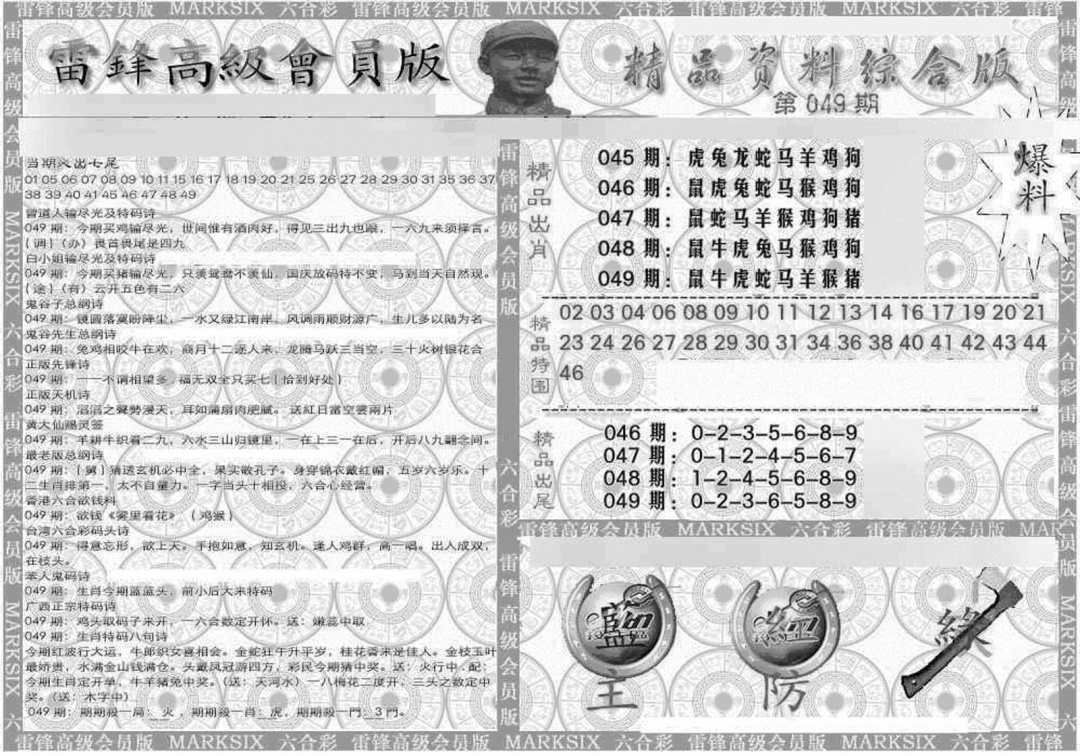 雷锋高级会员版 MARKSIX 六合彩 雷锋高级会员版 MARKSIX 六合彩 雷锋高级会员版 MARKSIX 六合彩 雷锋
雷鋒高級會員版
精品資料綜合版
第 049 期
当期火出七尾
01 05 06 07 08 09 10 11 15 16 17 18 19 20 21 25 26 27 28 29 30 31 35 36 37
38 39 40 41 45 46 47 48 49
曾道人输尽光及特码诗
049 期：今期买鸡输尽光，世间惟有酒肉好，得见三出九也跟，一六九来须择言。
{调}（办）畏首畏尾是四九
白小姐输尽光及特码诗
049 期：今期买猪输尽光，只羡鸳鸯不羡仙，国庆放码特不变，马到当天自然现。
{途}（有）云开五色有二六
鬼谷子总纲诗
049 期：镜圆落寞盼降尘，一水又绿江南岸，风调雨顺财源广，生儿多以陆为名
鬼谷先生总纲诗
049 期：兔鸡相咬牛在欢，商月十二逐人来，龙腾马跃三当空，三十火树银花合
正版先锋诗
049 期：一一不谓相望多，福无双全只买七{恰到好处}
正版天机诗
049 期：滔滔之聲勢漫天，耳如蒲扇肉肥膩。 送紅日當空雲兩片
黄大仙赐灵签
049 期：羊耕牛织着二九，六水三山归镜里，一在上三一在后，开后八九翻念间。
最老版总纲诗
049 期：{舅}猜送玄机必中全，果实敬孔子。身穿锦衣戴红帽，五岁六岁乐。十
二生肖排第一，太不自量力。一字当头十相投，六合心经营。
香港六合欲钱料
049 期：欲钱《雾里看花》 {鸡猴}
台湾六合彩码头诗
049 期：得意忘形，欲上天。手抱如意，知玄机。逢人鸡群，高一唱。出入成双，
在枝头。
苯人鬼码诗
049 期：生肖今期蓝蓝头，前小后大来特码
广西正宗特码诗
049 期：鸡头取码子来开，一六合数定开怀。送：嫩蕊中取
049 期：生肖特码八句诗
今期红波行大运，牛郎织女喜相会。金蛇狂午升平岁，桂花香来是佳人。金枝玉叶
最娇贵，水满金山钱满仓。头戴凤冠游四方，彩民今期猜中奖。送：火行中·配：
今期生肖定开单，牛羊猪兔中奖。（送：天河水）一八梅花二度开，三头之数定中
奖。（送：木字中）
049 期：期期殺一局：火，期期殺一肖：虎，期期殺一門：3 門。
精品出肖
045 期：虎兔龙蛇马羊鸡狗
046 期：鼠虎兔蛇马猴鸡狗
047 期：鼠蛇马羊猴鸡狗猪
048 期：鼠牛虎兔马猴鸡狗
049 期：鼠牛虎蛇马羊猴猪
爆料
精品特围
02 03 04 06 08 09 10 11 12 13 14 16 17 19 20 21
23 24 26 27 28 29 30 31 34 36 38 40 41 42 43 44
46
精品出尾
046 期：0-2-3-5-6-8-9
047 期：0-1-2-4-5-6-7
048 期：1-2-4-5-6-8-9
049 期：0-2-3-6-5-8-9
雷锋高级会员版 MARKSIX 六合彩 雷锋高级会员版
藍
紅
綠
主
防
雷锋高级会员版 MARKSIX 六合彩 雷锋高级会员版 MARKSIX 六合彩 雷锋高级会员版 MARKSIX 六合彩